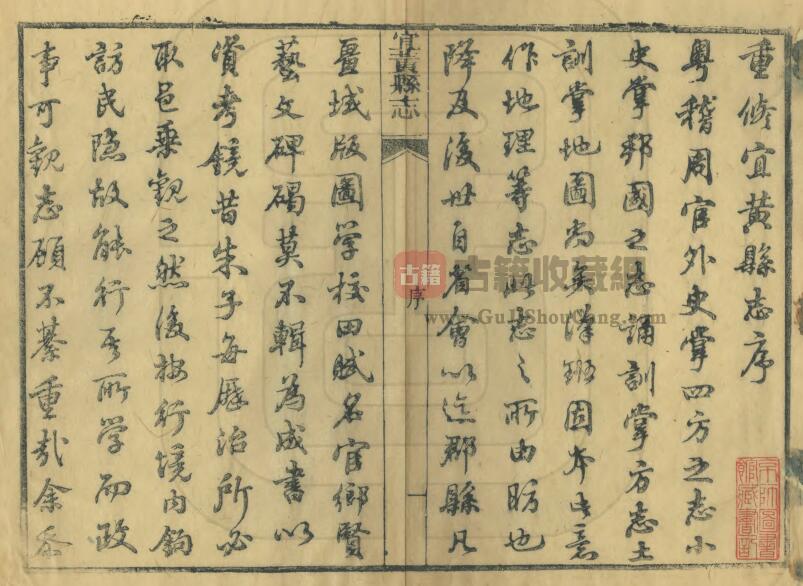 重修宜黃縣志序
粵稽周官外史掌四方之志小
史掌邦國之志誦訓掌方志土
訓掌地圖尚矣漢班固本此意
作地理等志此志之所由昉也
降及後世自省會以迄郡縣凡
宜黃縣志
序
一
疆域版圖學校田賦名宦鄉賢
藝文碑碣莫不輯為成書以
資考鏡昔朱子每歷治所必
取邑乘觀之然後按行境內鉤
訪民隱故能行其所學而政
事可觀志顧不綦重哉余忝
古籍
古籍收藏網
www.GuJiShouCang.com